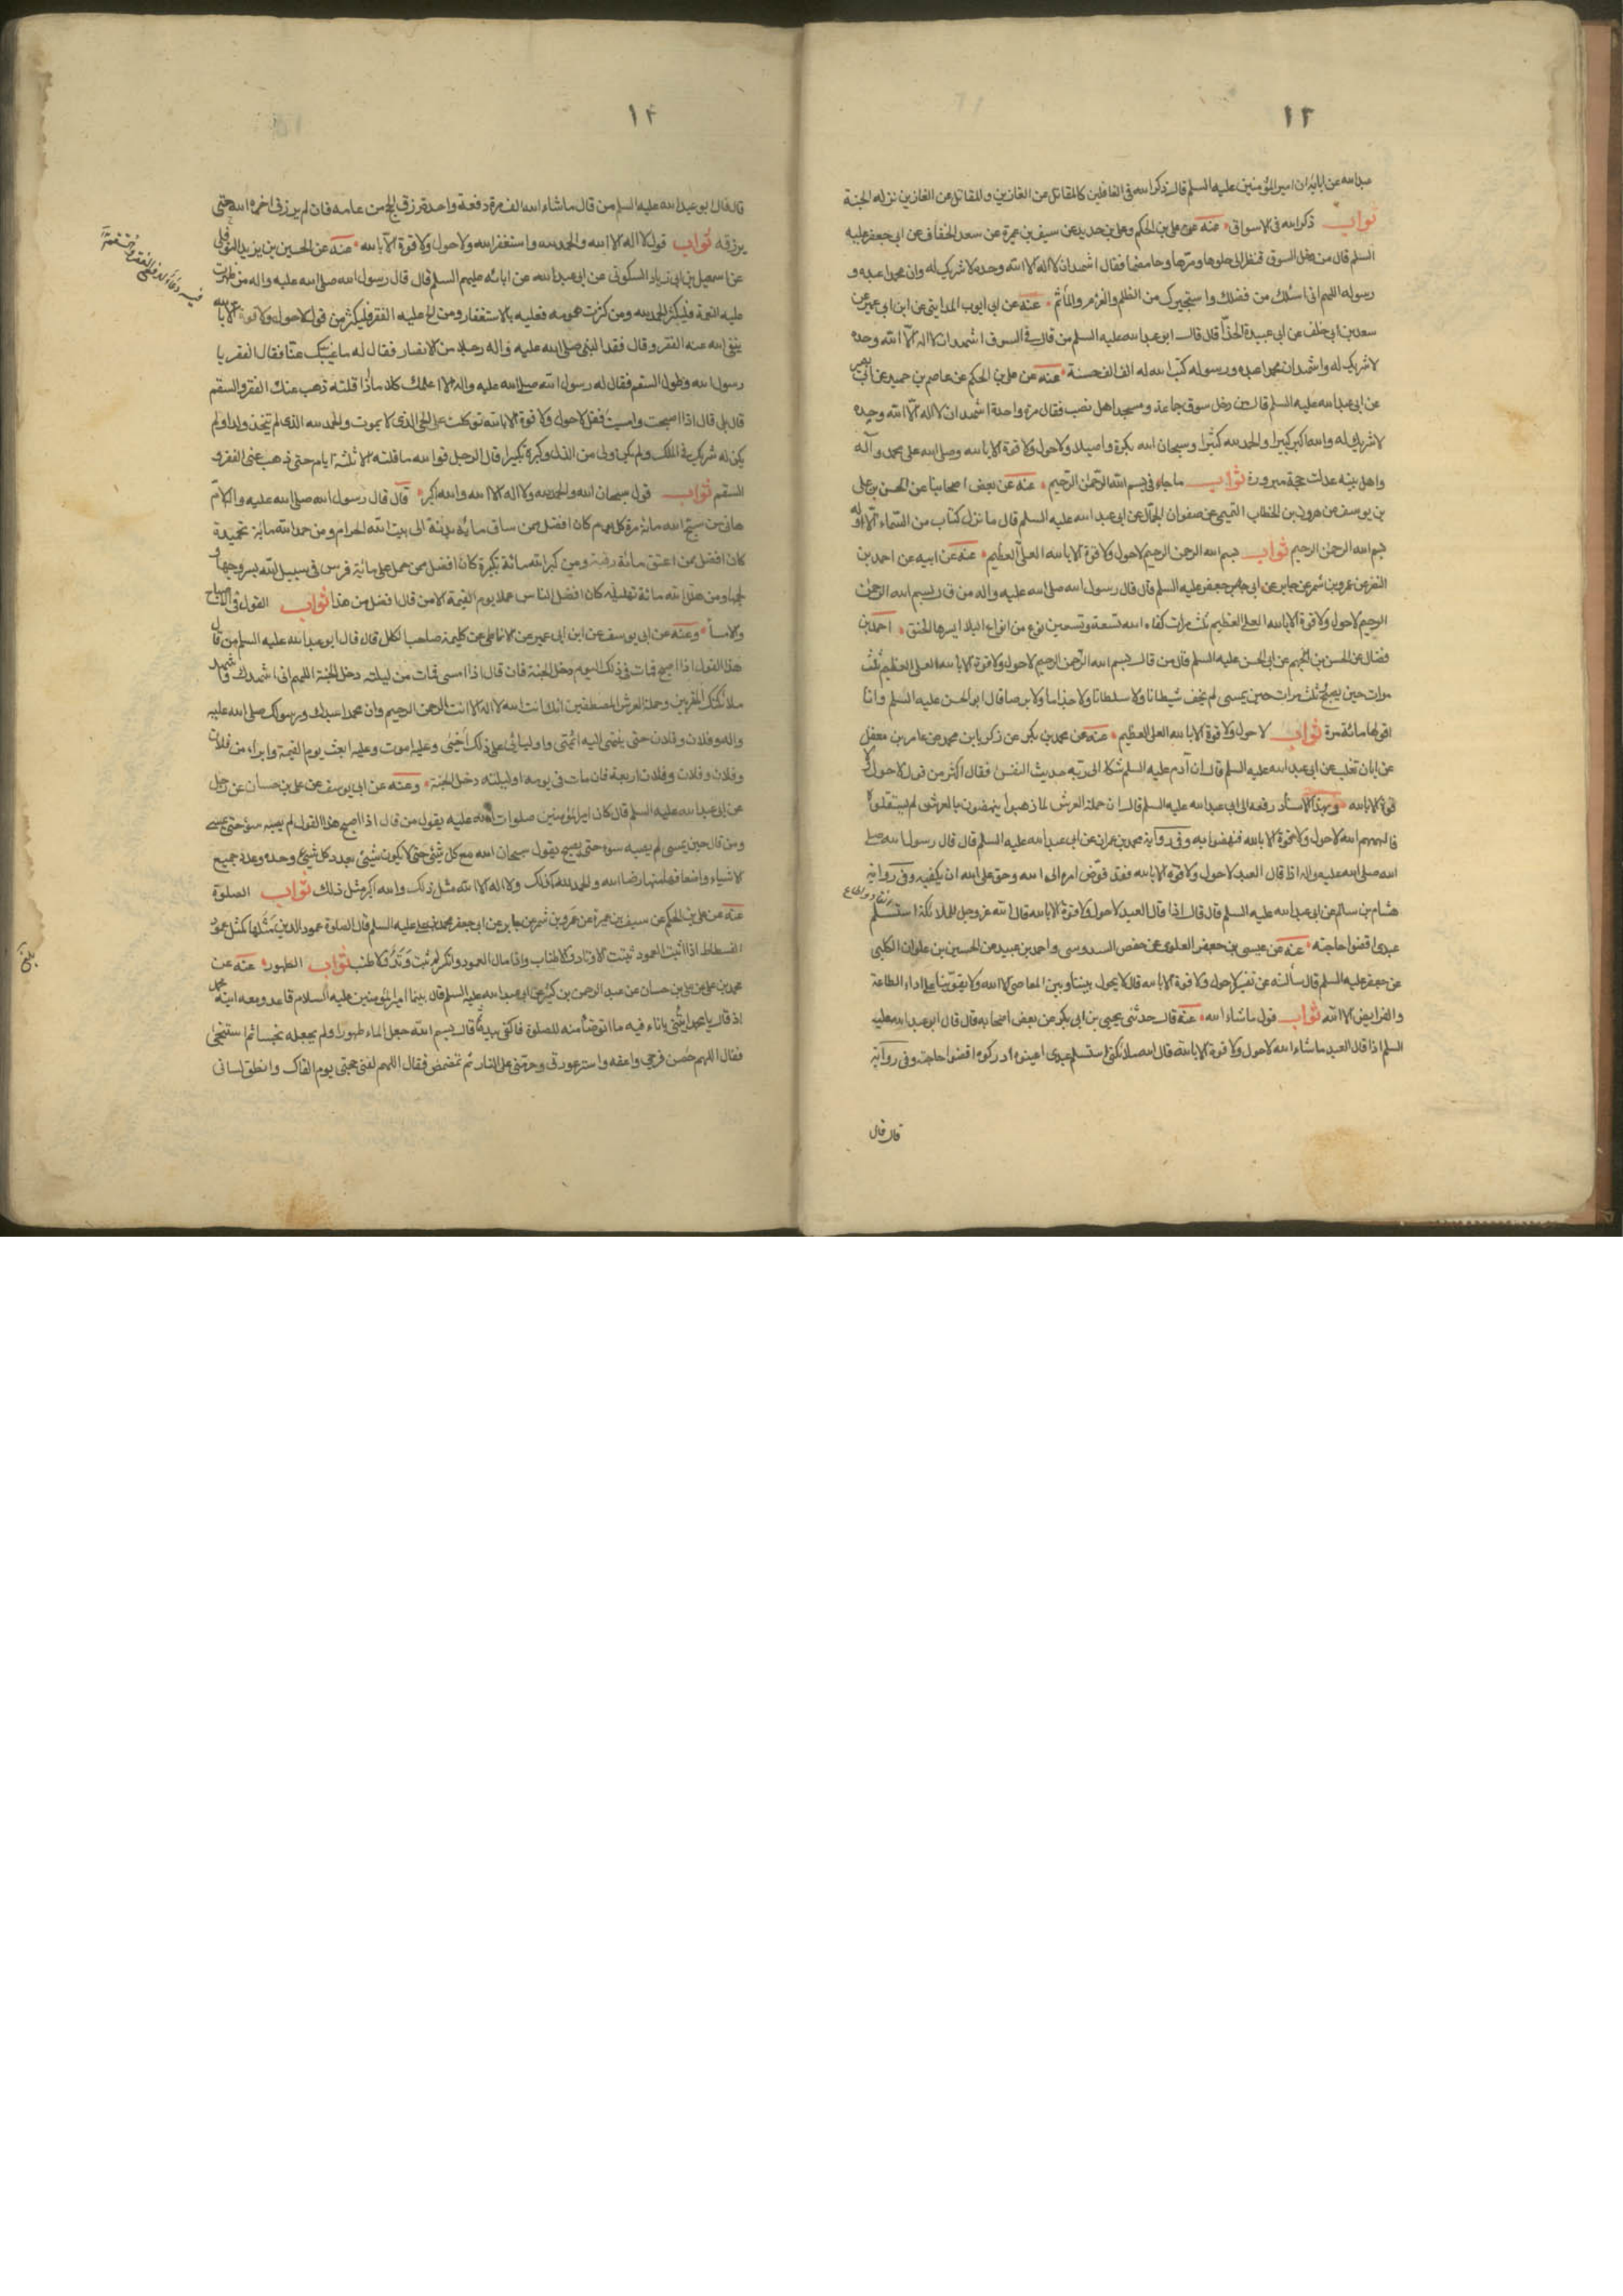 ١٢
عبد الله عن ابائه ان امير المؤمنين عليه السلم قال ذكر الله فى الغافلين كالمقاتل عن الفارين والمقاتل عن الفارين نزله الجنة
ثواب ذكر الله فى الاسواق عنه عن على بن الحكم وعلى بن حديد عن سيف بن عميرة عن سعد الخفاف عن ابى جعفر عليه
السلم قال من دخل السوق فنظر الى حلوها ومرها وحامضها فقال اشهد ان لا اله الا الله وحده لا شريك له وان محمدا عبده و
رسوله اللهم انى اسئلك من فضلك واستجيرك من الظلم والغرم والمأثم عنه عن ابى ايوب المداينى عن ابن ابى عمير عن
سعد بن ابى خلف عن ابى عبيدة الحذا قال قال ابو عبد الله عليه السلم من قال فى السوق اشهد ان لا اله الا الله وحده
لا شريك له واشهد ان محمدا عبده ورسوله كتب الله له الف الف حسنة عنه عن على بن الحكم عن عاصم بن حميد عن ابى بصير
عن ابى عبد الله عليه السلم قال من دخل سوق جماعة ومسجد اهل نصب فقال مرة واحدة اشهد ان لا اله الا الله وحده
لا شريك له والله اكبر كبيرا والحمد لله كثيرا وسبحان الله بكرة واصيلا ولا حول ولا قوة الا بالله وصلى الله على محمد وآله
واهل بيته عدلت حجة مبرورة ثواب ما جاء فى بسم الله الرحمن الرحيم عنه عن بعض اصحابنا عن الحسن بن على
بن يوسف عن هرون بن الخطاب التميمى عن صفوان الجمال عن ابى عبد الله عليه السلم قال ما نزل كتاب من السماء الا واوله
بسم الله الرحمن الرحيم ثواب بسم الله الرحمن الرحيم لا حول ولا قوة الا بالله العلى العظيم عنه عن ابيه عن احمد بن
النضر عن عمرو بن شمر عن جابر عن ابى جعفر عليه السلم قال قال رسول الله صلى الله عليه واله من قال بسم الله الرحمن
الرحيم لا حول ولا قوة الا بالله العلى العظيم ثلث مرات كفاه الله تسعة وتسعين نوع من انواع البلاء ايسرها الخنق احمد بن
فضال عن الحسن بن الجهم عن ابى الحسن عليه السلم قال من قال بسم الله الرحمن الرحيم لا حول ولا قوة الا بالله العلى العظيم ثلث
مرات حين يصبح وثلث مرات حين يمسى لم يخف شيطانا ولا سلطانا ولا جذاما ولا برصا قال ابو الحسن عليه السلم وانا
اقولها مائة مرة ثواب لا حول ولا قوة الا بالله العلى العظيم عنه عن محمد بن بكر عن زكريا بن محمد عن عامر بن معقل
عن ابان تغلب عن ابى عبد الله عليه السلم قال ان آدم عليه السلم شكا الى ربه حديث النفس فقال اكثر من قول لا حول ولا
قوة الا بالله وبهذا الاسناد رفعه الى ابى عبد الله عليه السلم قال ان حملة العرش لما ذهبوا ينهضون بالعرش لم يستقلوه
فالهمهم الله لا حول ولا قوة الا بالله فنهضوا به وفى رواية محمد بن عمران عن ابى عبد الله عليه السلم قال قال رسول الله صلى
الله صلى الله عليه واله اذا قال العبد لا حول ولا قوة الا بالله فقد فوض امره الى الله وحق على الله ان يكفيه وفى رواية
هشام بن سالم عن ابى عبد الله عليه السلم قال قال اذا قال العبد لا حول ولا قوة الا بالله قال الله عز وجل للملائكة استسلم
عبدى اقضوا حاجته عنه عن عيسى بن جعفر العلوى عن حفص السدوسى واحمد بن عبيد عن الحسين بن علوان الكلبى
عن جعفر عليه السلم قال سألته عن تفسير لا حول ولا قوة الا بالله قال لا يحول بيننا وبين المعاصى الا الله ولا يقوينا على اداء الطاعة
والفرايض الا الله ثواب قول ما شاء الله عنه قال حدثنى يحيى بن ابى بكر عن بعض اصحابه قال قال ابو عبد الله عليه
السلم اذا قال العبد ما شاء الله لا حول ولا قوة الا بالله قال الله ملائكتى استسلم عبدى اعينوه ادركوه اقضوا حاجته وفى رواية
قال قال
قال قال ابو عبد الله عليه السلم من قال ما شاء الله الف مرة دفعة واحدة رزق الحج من عامه فان لم يرزق اخره الله حتى
يرزقه ثواب قول لا اله الا الله والحمد لله واستغفر الله ولا حول ولا قوة الا بالله عنه عن الحسين بن يزيد النوفلى
عن اسمعيل بن ابى زياد السكونى عن ابى عبد الله عن ابائه عليهم السلم قال قال رسول الله صلى الله عليه واله من ظهرت
عليه النعمة فليكثر الحمد لله ومن كثرت همومه فعليه بالاستغفار ومن الح عليه الفقر فليكثر من قول لا حول ولا قوة الا بالله
ينفى الله عنه الفقر وقال فقد النبى صلى الله عليه واله رجلا من الانصار فقال له ما غيبك عنا فقال الفقر يا
رسول الله وطول السقم فقال له رسول الله صلى الله عليه واله الا اعلمك كلاما اذا قلته ذهب عنك الفقر والسقم
قال بلى قال اذا اصبحت وامسيت فقل لا حول ولا قوة الا بالله توكلت على الحى الذى لا يموت والحمد لله الذى لم يتخذ ولدا ولم
يكن له شريك فى الملك ولم يكن له ولى من الذل وكبره تكبيرا قال الرجل فوالله ما قلته الا ثلثة ايام حتى ذهب عنى الفقر و
السقم ثواب قول سبحان الله والحمد لله ولا اله الا الله والله اكبر قال قال رسول الله صلى الله عليه واله لام
هانى من سبح الله مائة مرة كل يوم كان افضل ممن ساق مائة بدنة الى بيت الله الحرام ومن حمد الله مائة تحميدة
كان افضل ممن اعتق مائة رقبة ومن كبر الله مائة تكبيرة كان افضل ممن حمل على مائة فرس فى سبيل الله بسروجها و
لجمها ومن هلل الله مائة تهليلة كان افضل الناس عملا يوم القيمة الا من قال افضل من هذا ثواب القول فى الصباح
والامساء وعنه عن ابى يوسف عن ابن ابى عمير عن الانماطى عن كليمة صاحب الكلل قال قال ابو عبد الله عليه السلم من قال
هذا القول اذا اصبح فمات فى ذلك اليوم دخل الجنة فان قال اذا امسى فمات من ليلته دخل الجنة اللهم انى اشهدك واشهد
ملائكتك المقربين وحملة العرش المصطفين انك انت الله لا اله الا انت الرحمن الرحيم وان محمدا عبدك ورسولك صلى الله عليه
واله وفلان وفلان حتى ينتهى اليه ائمتى واوليائى على ذلك احيى وعليه اموت وعليه ابعث يوم القيمة وابراء من فلان
وفلان وفلان وفلان اربعة فان مات فى يومه او ليلته دخل الجنة وعنه عن ابى يوسف عن على بن حسان عن رجل
عن ابى عبد الله عليه السلم قال كان امير المؤمنين صلوات الله عليه يقول من قال اذا اصبح هذا القول لم يصبه سوء حتى يمسى
ومن قال حين يمسى لم يصبه سوء حتى يصبح يقول سبحان الله مع كل شئ حتى لا يكون شئ بعدد كل شئ وحده وعدد جميع
الاشياء واضعافها منتهى رضا الله والحمد لله كذلك ولا اله الا الله مثل ذلك والله اكبر مثل ذلك ثواب الصلوة
عنه عن على بن الحكم عن سيف بن عميرة عن عمرو بن شمر عن جابر عن ابى جعفر محمد بن على عليه السلم قال الصلوة عمود الدين مثلها كمثل عمود
الفسطاط اذا ثبت العمود ثبتت الاوتاد والاطناب واذا مال العمود وانكسر لم يثبت وتد ولا طنب ثواب الطهور عنه عن
محمد بن على عن على بن حسان عن عبد الرحمن بن كثير عن ابى عبد الله عليه السلم قال بينما امير المؤمنين عليه السلام قاعد ومعه ابنه محمد
اذ قال يا محمد ائتنى باناء فيه ما اتوضأ منه للصلوة فاكفى بيده ثم قال بسم الله جعل الماء طهورا ولم يجعله نجسا ثم استنجى
فقال اللهم حصن فرجى واعفه واستر عورتى وحرمنى على النار ثم تمضمض فقال اللهم لقنى حجتى يوم القاك وانطق لسانى